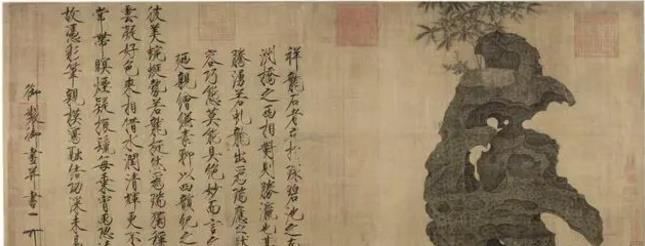 祥龍石者立於環碧池之南
洲橋之西相對則勝瀛也其
騰湧若虬龍出為瑞應之狀
容巧態莫能具絕妙而言之
廼親繪縑素聊以四韻紀之
彼美蜿蜒勢若龍挺然為瑞獨稱
雲凝好色來相借水潤清輝更不
常帶暝煙疑振鬣每乘宵雨恐
故憑彩筆親模寫融結功深未易
御製御畫并書